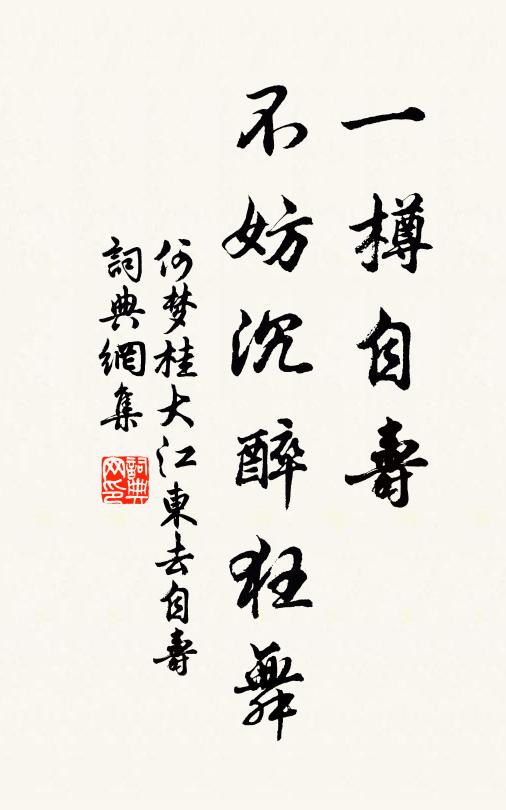 一樽自壽
不妨沉醉狂舞
何梦桂大江東去自壽
詞典網集
詞典網印